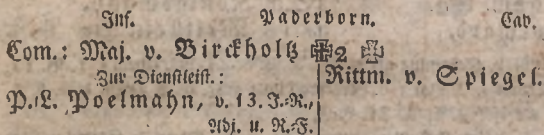 Inf. Paderborn. Cav.
Com.: Maj. v. Birckholtz ✠2 ✠
Zur Dienstleist.:
P.L. Poelmahn, v. 13. J.-R.,
Adj. u. R.-F.
Rittm. v. Spiegel.